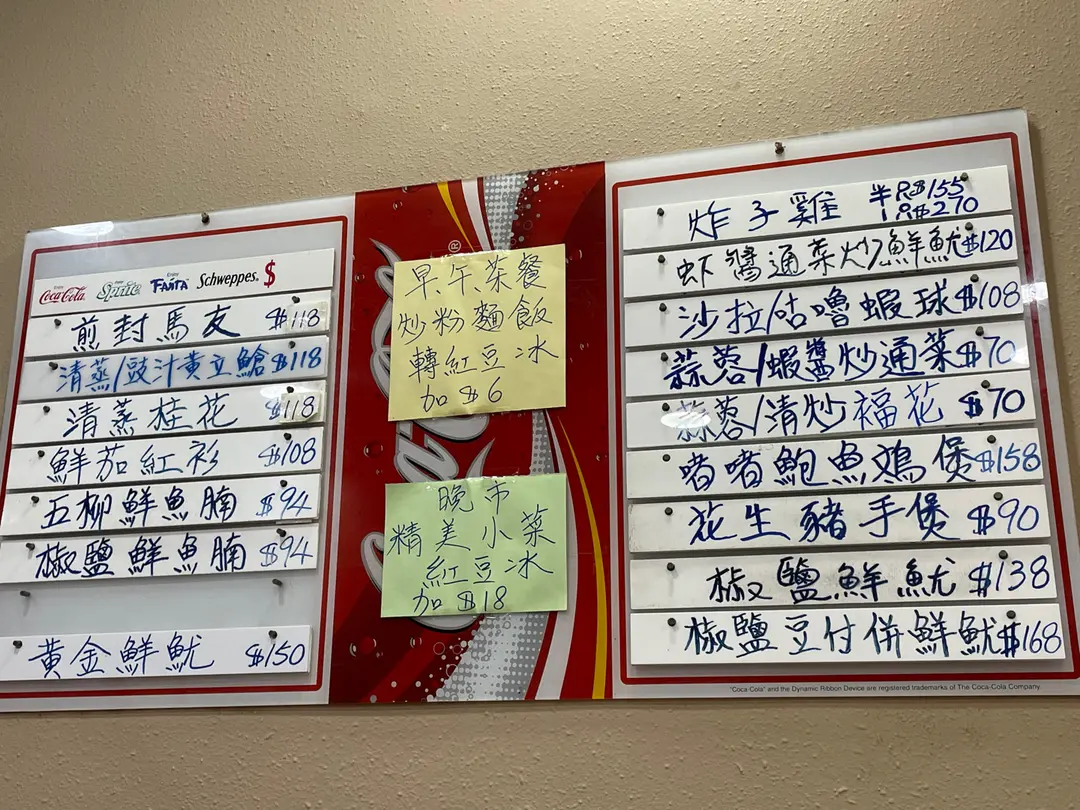 Enjoy Coca-Cola Enjoy Sprite Enjoy FANTA Schweppes® $
煎封馬友 $118
清蒸/豉汁黃立鯧 $118
清蒸桂花 $118
鮮茄紅衫 $108
五柳鮮魚腩 $94
椒鹽鮮魚腩 $94
黃金鮮魷 $150
早午茶餐
炒粉麵飯
轉紅豆冰
加 $6
晚市
精美小菜
紅豆冰
加 $18
炸子雞 半只$155
1只$270
虾醬通菜炒鮮魷 $120
沙拉/咕嚕蝦球 $108
蒜蓉/蝦醬炒通菜 $70
蒜蓉/清炒福花 $70
啫啫鮑魚鴻煲 $158
花生豬手煲 $90
椒鹽鮮魷 $138
椒鹽豆付併鮮魷 $168
"Coca-Cola" and the Dynamic Ribbon Device are registered trademarks of The Coca-Cola Company.